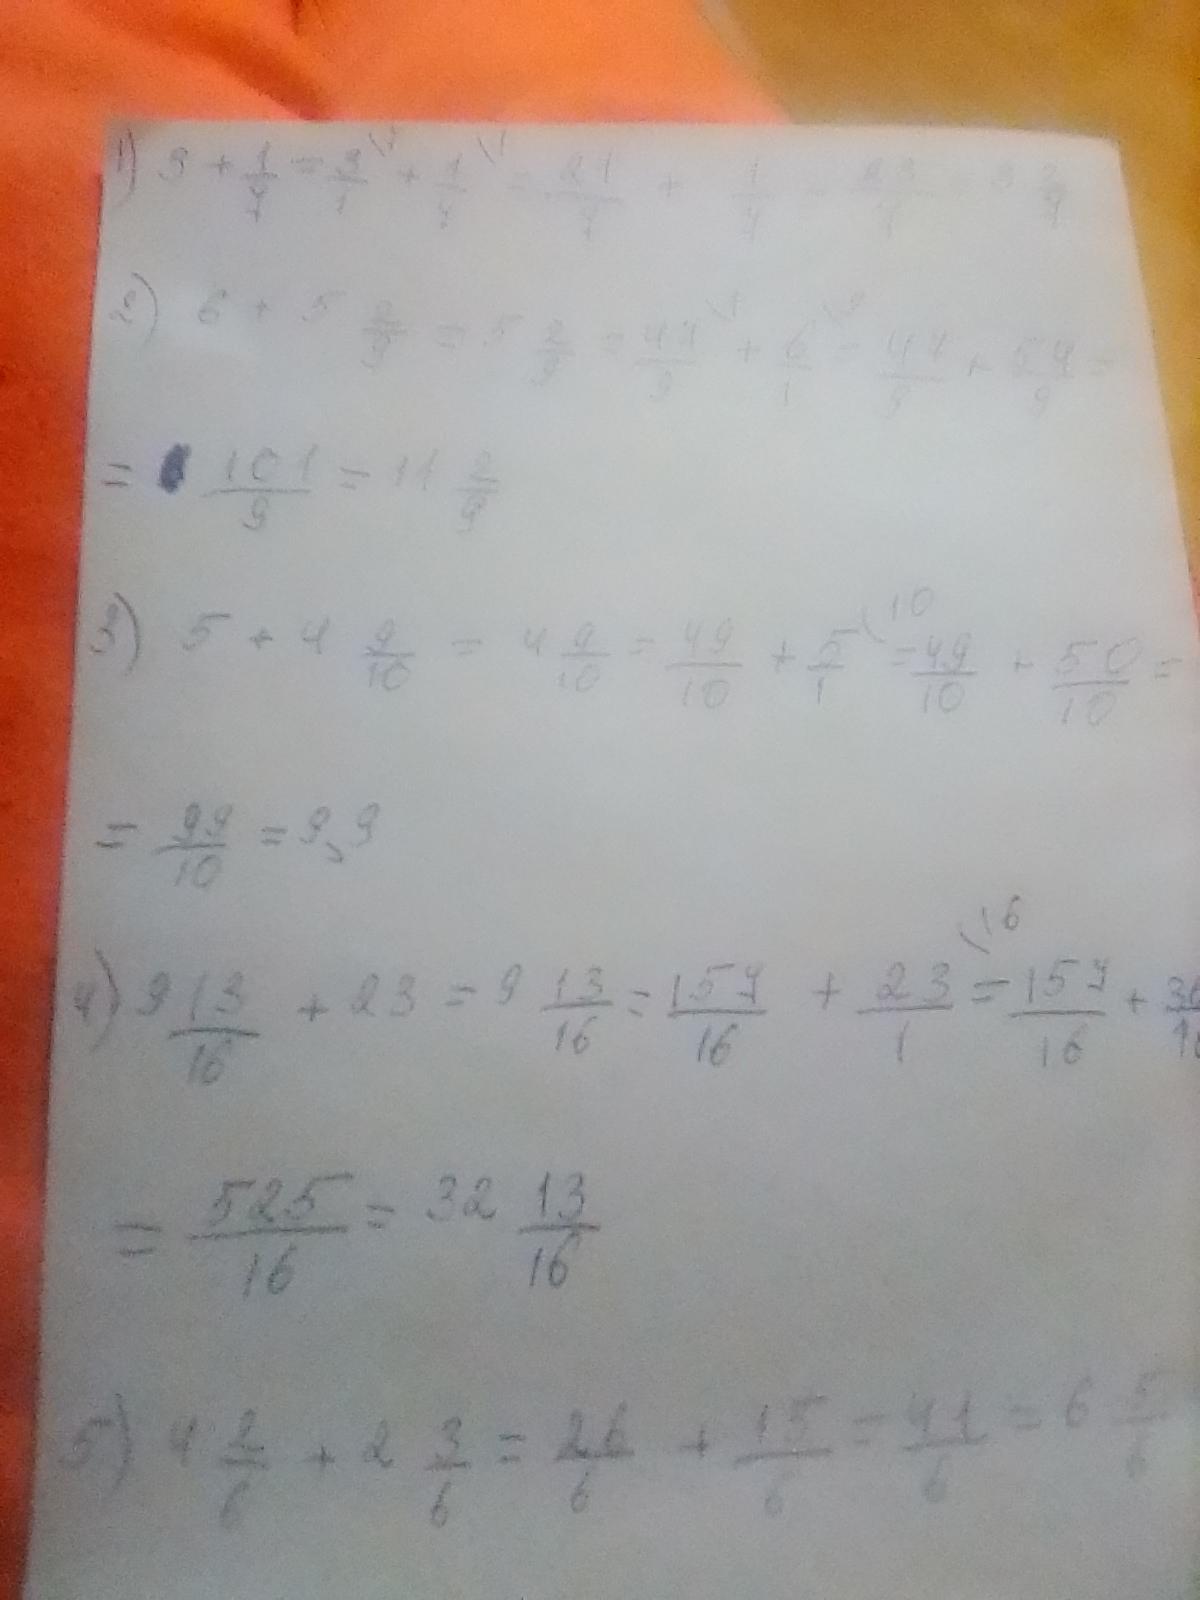 1) 3 + 1/7 = 3/1 \7 + 1/7 \1 = 21/7 + 1/7 = 23/7 3 2/7
2) 6 + 5 2/9 = 5 2/9 = 47/9 \1 + 6/1 \9 = 47/9 + 54/9 =
= 101/9 = 11 2/9
3) 5 + 4 9/10 = 4 9/10 = 49/10 + 5/1 \10 = 49/10 + 50/10 =
= 99/10 = 9,9
4) 9 13/16 + 23 = 9 13/16 = 157/16 + 23/1 \16 = 157/16 +
= 525/16 = 32 13/16
5) 4 2/6 + 2 3/6 = 26/6 + 15/6 = 41/6 = 6 5/6